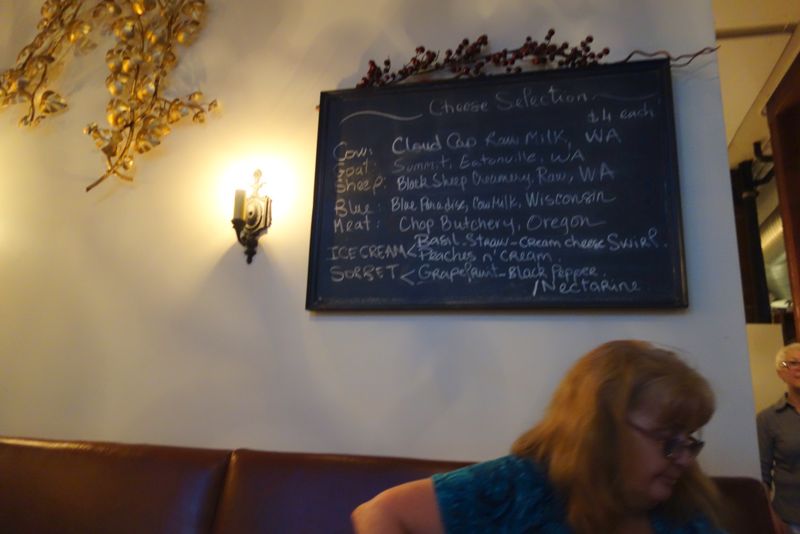 Cheese Selection
$4 each
Cow: Cloud Cap Raw Milk, WA
Goat: Summit, Eatonville, WA
Sheep: Black Sheep Creamery, Raw, WA
Blue: Blue Paradise, Cow Milk, Wisconsin
Meat: Chop Butchery, Oregon
ICE CREAM < Basil-Straw-Cream cheese Swirl.
Peaches n' Cream.
SORBET < Grapefruit-Black Pepper.
/Nectarine